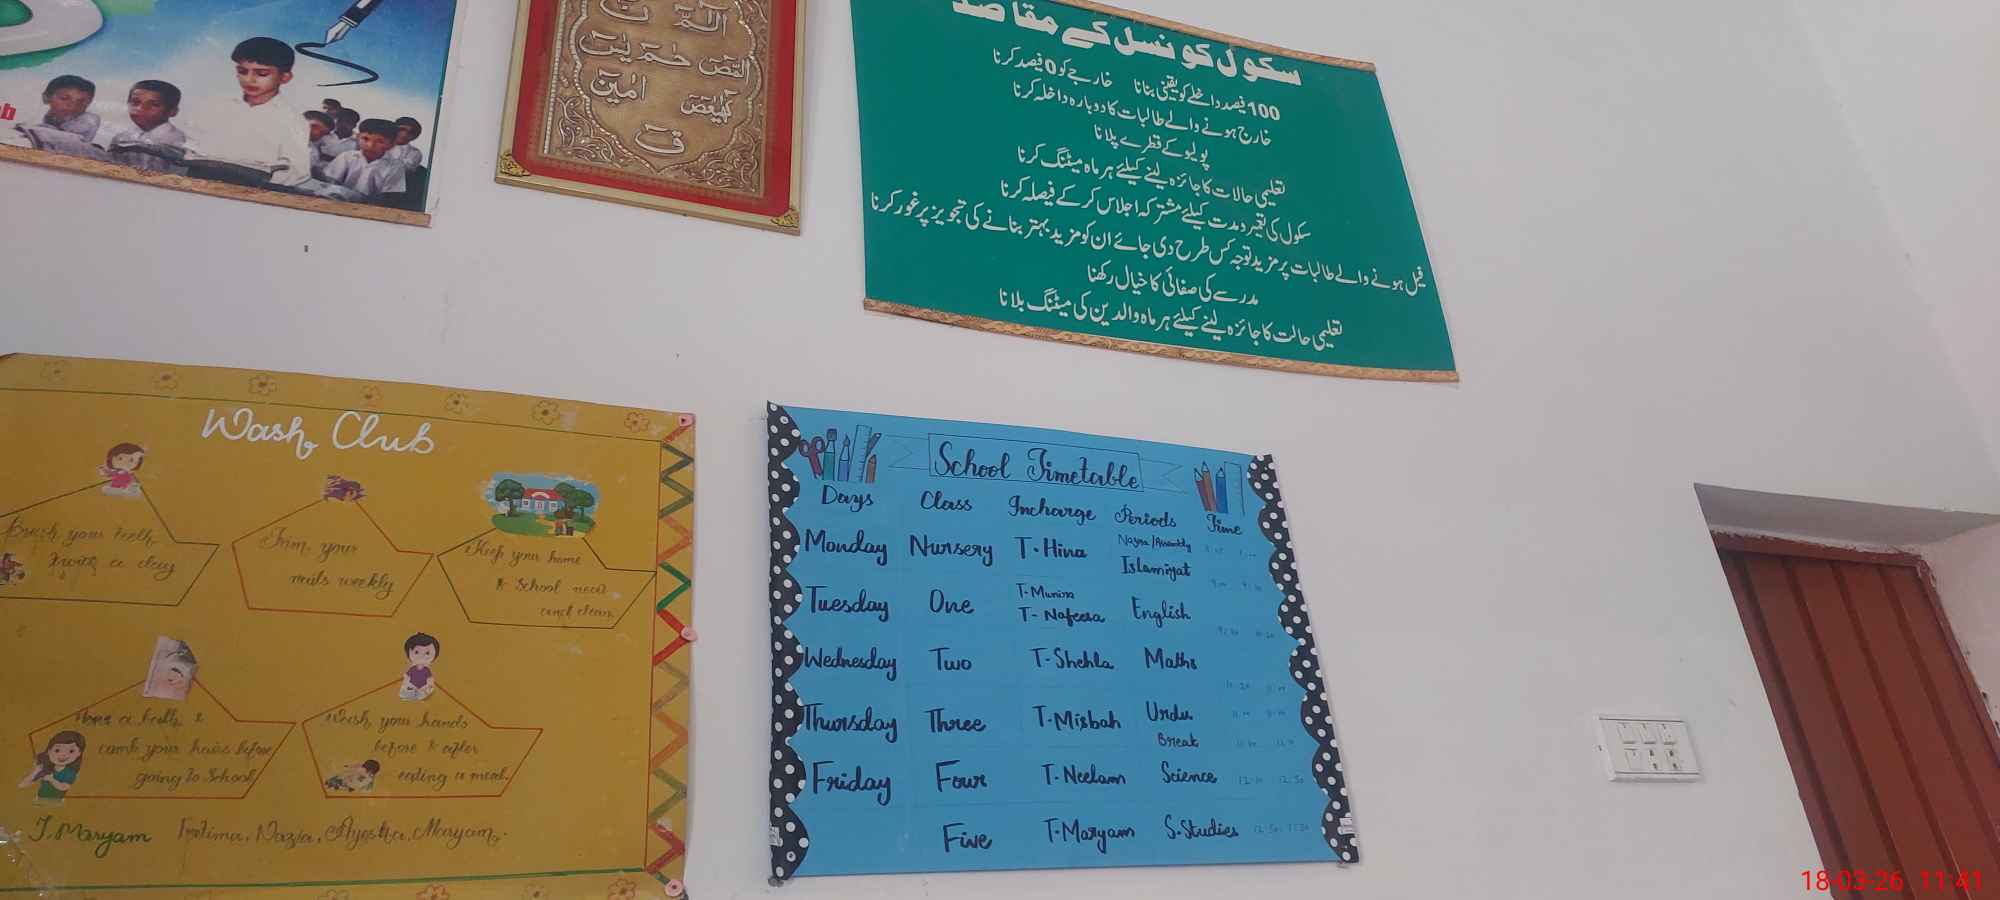 الٓمّٓ نٓ
الٓمّٓصٓ حٰمٓ يٰسٓ
كٓهٰيٰعٓصٓ اٰمين
قٓ
سکول کونسل کے مقاصد
100 فیصد داخلے کو یقینی بنانا خارجے کو 0 فیصد کرنا
خارج ہونے والے طالبات کا دوبارہ داخلہ کرنا
پولیو کے قطرے پلانا
تعلیمی حالات کا جائزہ لینے کیلئے ہر ماہ میٹنگ کرنا
سکول کی تعمیر و مدت کیلئے مشترکہ اجلاس کر کے فیصلہ کرنا
فیل ہونے والے طالبات پر مزید توجہ کس طرح دی جائے ان کو مزید بہتر بنانے کی تجویز پر غور کرنا
مدرسے کی صفائی کا خیال رکھنا
تعلیمی حالت کا جائزہ لینے کیلئے ہر ماہ والدین کی میٹنگ بلانا
Wash Club
Brush your teeth
twice a day
Trim your
nails weekly
Keep your home
& school neat
and clean
Have a bath &
comb your hairs before
going to School
Wash your hands
before & after
eating a meal.
T. Maryam Fatima, Nazia, Ayesha, Maryam.
School Timetable
Days Class Incharge Periods Time
Monday Nursery T. Hina Nazra/Assembly
Islamiyat
Tuesday One T. Munira
T- Nafeesa English
Wednesday Two T-Shehla Maths
Thursday Three T-Misbah Urdu
Break
Friday Four T-Neelam Science 12:10 12:50
Five T-Maryam S.Studies
18-03-26 11:41